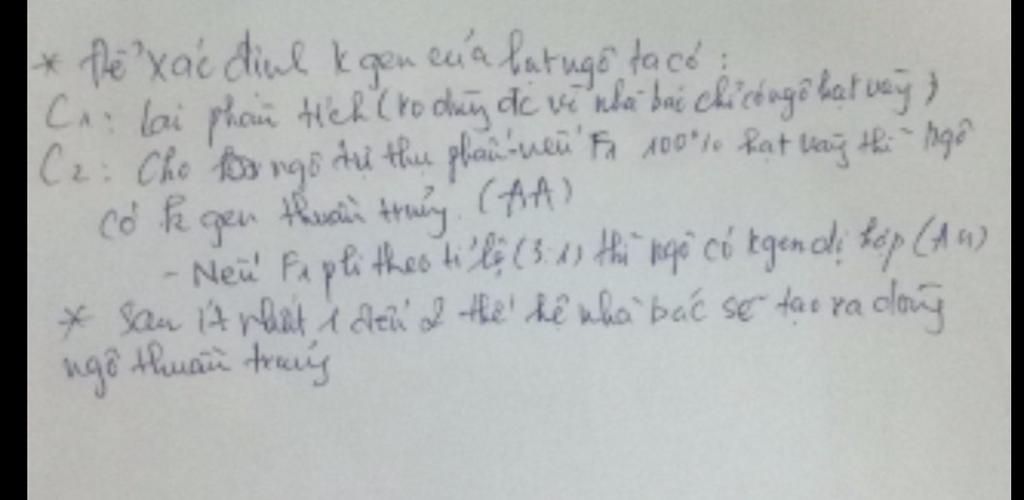 * Để xác định k gen của hạt ngô ta có :
C1 : lai phân tích (ko dùng đc vì nhà bác chỉ có ngô hạt vàng)
C2 : Cho ngô tự thụ phấn - nếu F1 100% hạt vàng thì ngô
có k gen thuần trủng. (AA)
- Nếu F1 pli theo tỉ lệ (3:1) thì ngô có kgen dị hớp (Aa)
* Sau ít nhất 1 đến 2 thế hệ nhà bác sẽ tạo ra dòng
ngô thuần trủng